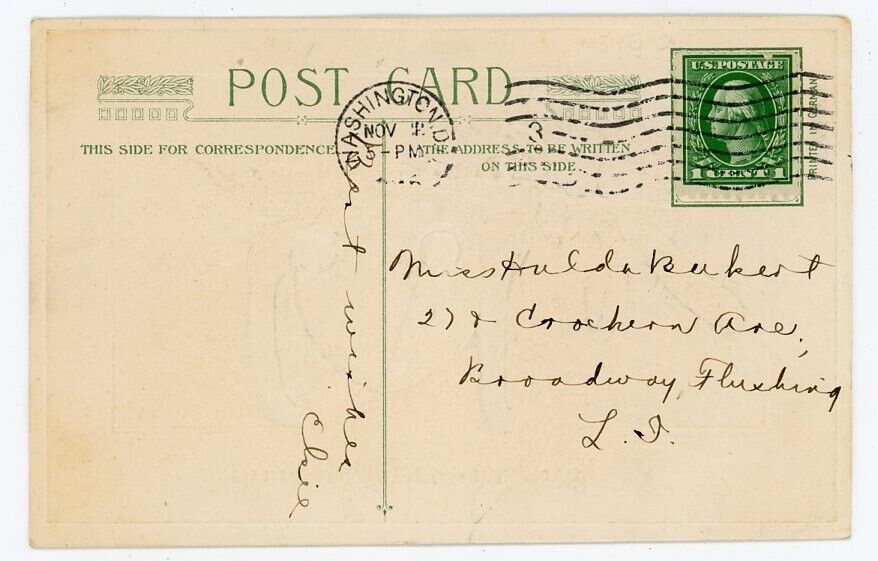 POST CARD
THIS SIDE FOR CORRESPONDENCE
THE ADDRESS TO BE WRITTEN
ON THIS SIDE
WASHINGTON, D.
NOV
5-PM
3
U.S. POSTAGE
1 CENT 1
PRINTED IN GERMANY
Miss Hulda
Ave,
Broadway, Flushing
L. I.
wishes